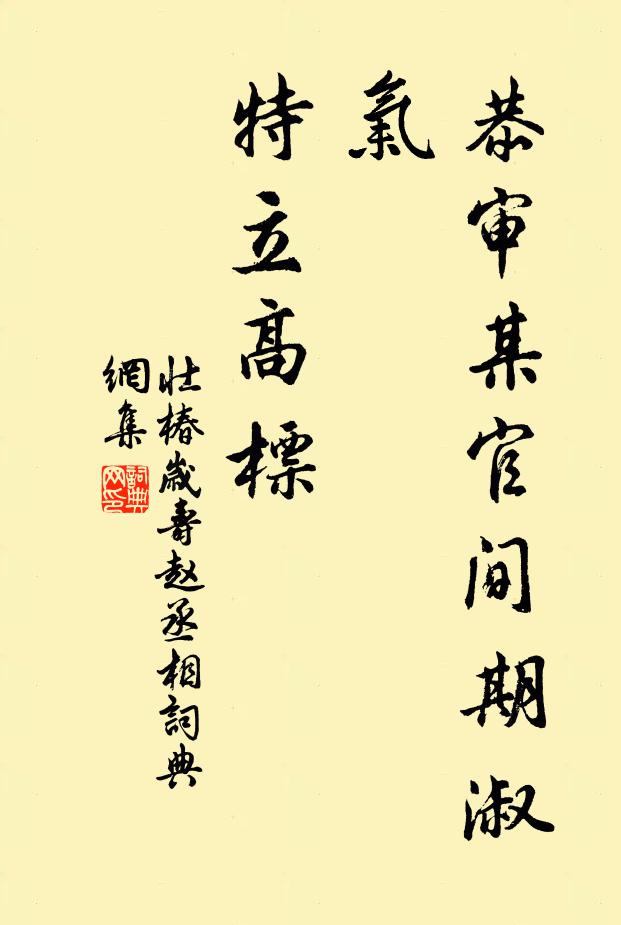 恭审某官间期淑
氣
特立高標
壮椿歲壽赵丞相詞典
網集
詞典
网印